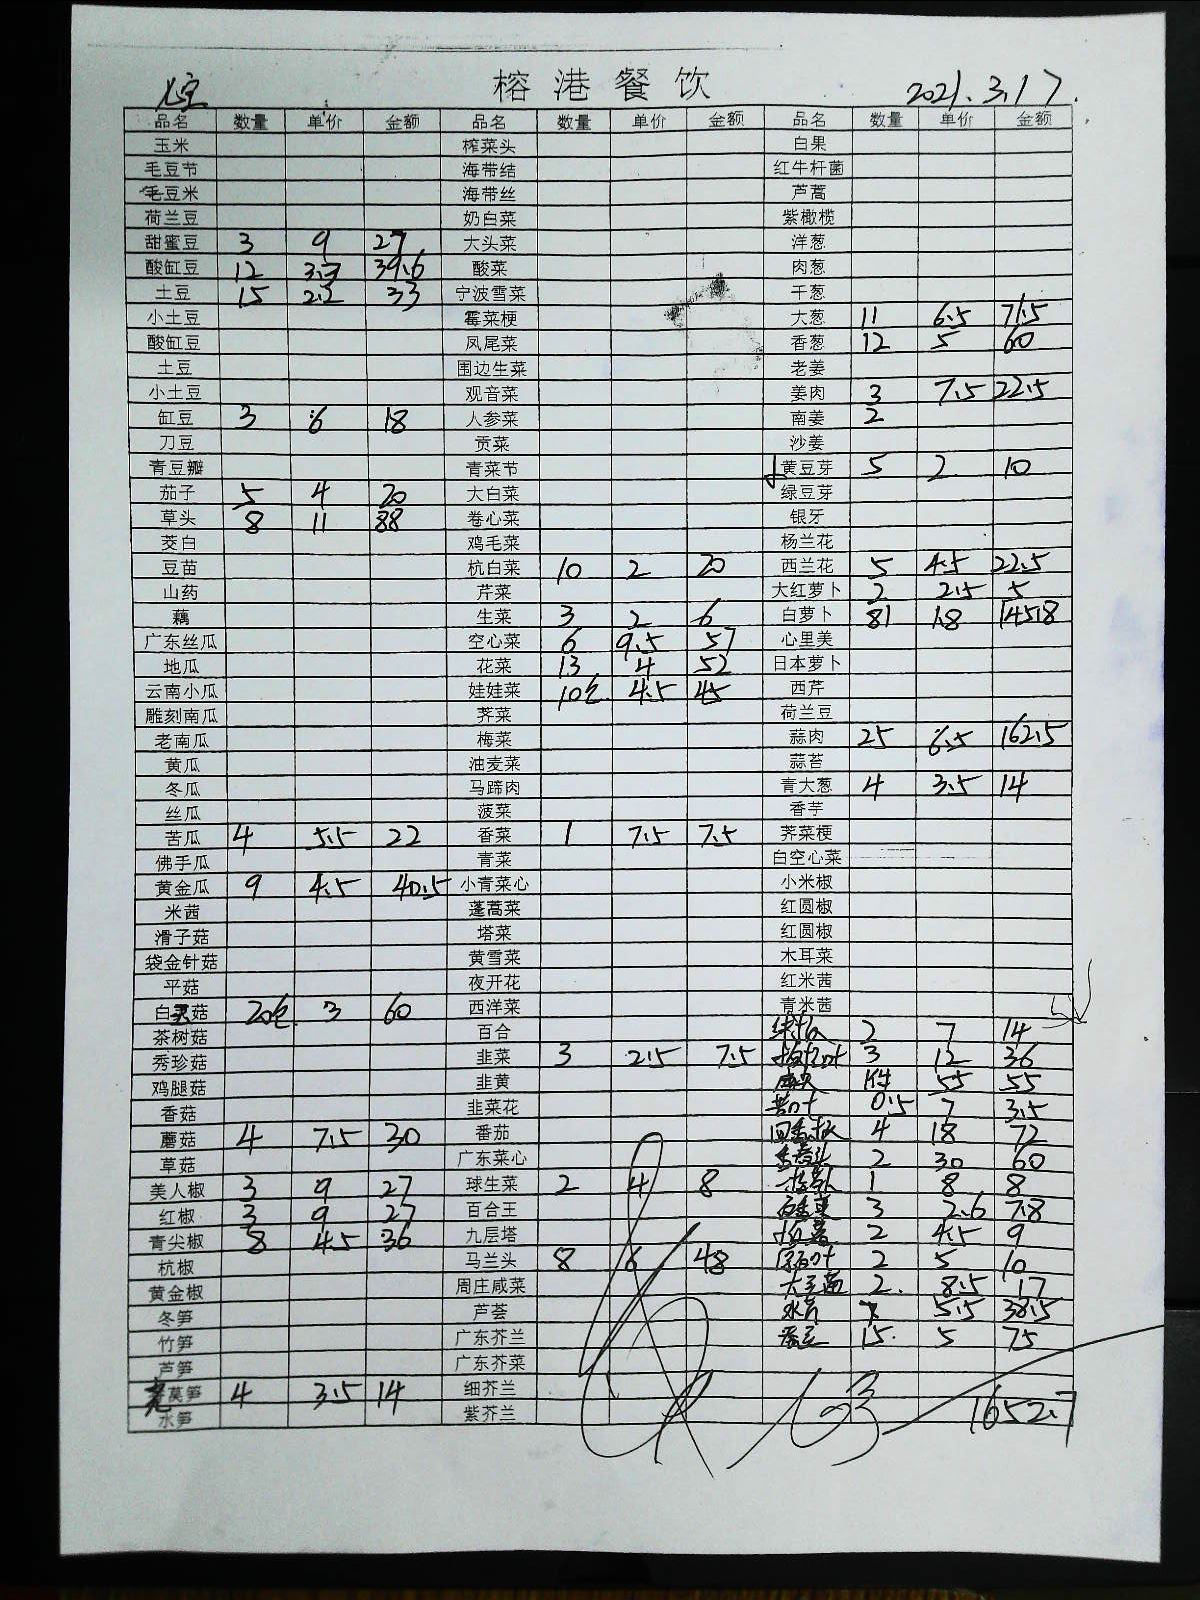 榕港餐饮
2021.3.17.
品名 数量 单价 金额 品名 数量 单价 金额 品名 数量 单价 金额
玉米 榨菜头 白果
毛豆节 海带结 红牛杆菌
毛豆米 海带丝 芦蒿
荷兰豆 奶白菜 紫橄榄
甜蜜豆 3 9 27 大头菜 洋葱
酸缸豆 12 3.3 39.6 酸菜 肉葱
土豆 15 2.2 33 宁波雪菜 干葱
小土豆 霉菜梗 大葱 11 6.5 71.5
酸缸豆 凤尾菜 香葱 12 5 60
土豆 围边生菜 老姜
小土豆 观音菜 姜肉 3 7.5 22.5
缸豆 3 6 18 人参菜 南姜 2
刀豆 贡菜 沙姜
青豆瓣 青菜节 黄豆芽 5 2 10
茄子 5 4 20 大白菜 绿豆芽
草头 8 11 88 卷心菜 银牙
茭白 鸡毛菜 杨兰花
豆苗 杭白菜 10 2 20 西兰花 5 4.5 22.5
山药 芹菜 大红萝卜 2 2.5 5
藕 生菜 3 2 6 白萝卜 81 1.8 145.8
广东丝瓜 空心菜 6 9.5 57 心里美
地瓜 花菜 13 4 52 日本萝卜
云南小瓜 娃娃菜 10包 4.5 45 西芹
雕刻南瓜 荠菜 荷兰豆
老南瓜 梅菜 蒜肉 25 6.5 162.5
黄瓜 油麦菜 蒜苔
冬瓜 马蹄肉 青大葱 4 3.5 14
丝瓜 菠菜 香芋
苦瓜 4 5.5 22 香菜 1 7.5 7.5 荠菜梗
佛手瓜 青菜 白空心菜
黄金瓜 9 4.5 40.5 小青菜心 小米椒
米茜 蓬蒿菜 红圆椒
滑子菇 塔菜 红圆椒
袋金针菇 黄雪菜 木耳菜
平菇 夜开花 红米茜
白灵菇 20包 3 60 西洋菜 青米茜
茶树菇 百合 2 7 14
秀珍菇 韭菜 3 2.5 7.5 3 12 36
鸡腿菇 韭黄 1件 55 55
香菇 韭菜花 0.5 7 3.5
蘑菇 4 7.5 30 番茄 4 18 72
草菇 广东菜心 2 30 60
美人椒 3 9 27 球生菜 2 4 8 1 8 8
红椒 3 9 27 百合王 3 2.6 7.8
青尖椒 8 4.5 36 九层塔 2 4.5 9
杭椒 马兰头 8 6 48 2 5 10
黄金椒 周庄咸菜 2 8.5 17
冬笋 芦荟 5.5 38.5
竹笋 广东芥兰 15 5 75
芦笋 广东芥菜
莴笋 4 3.5 14 细芥兰
水笋 紫芥兰 1652.7